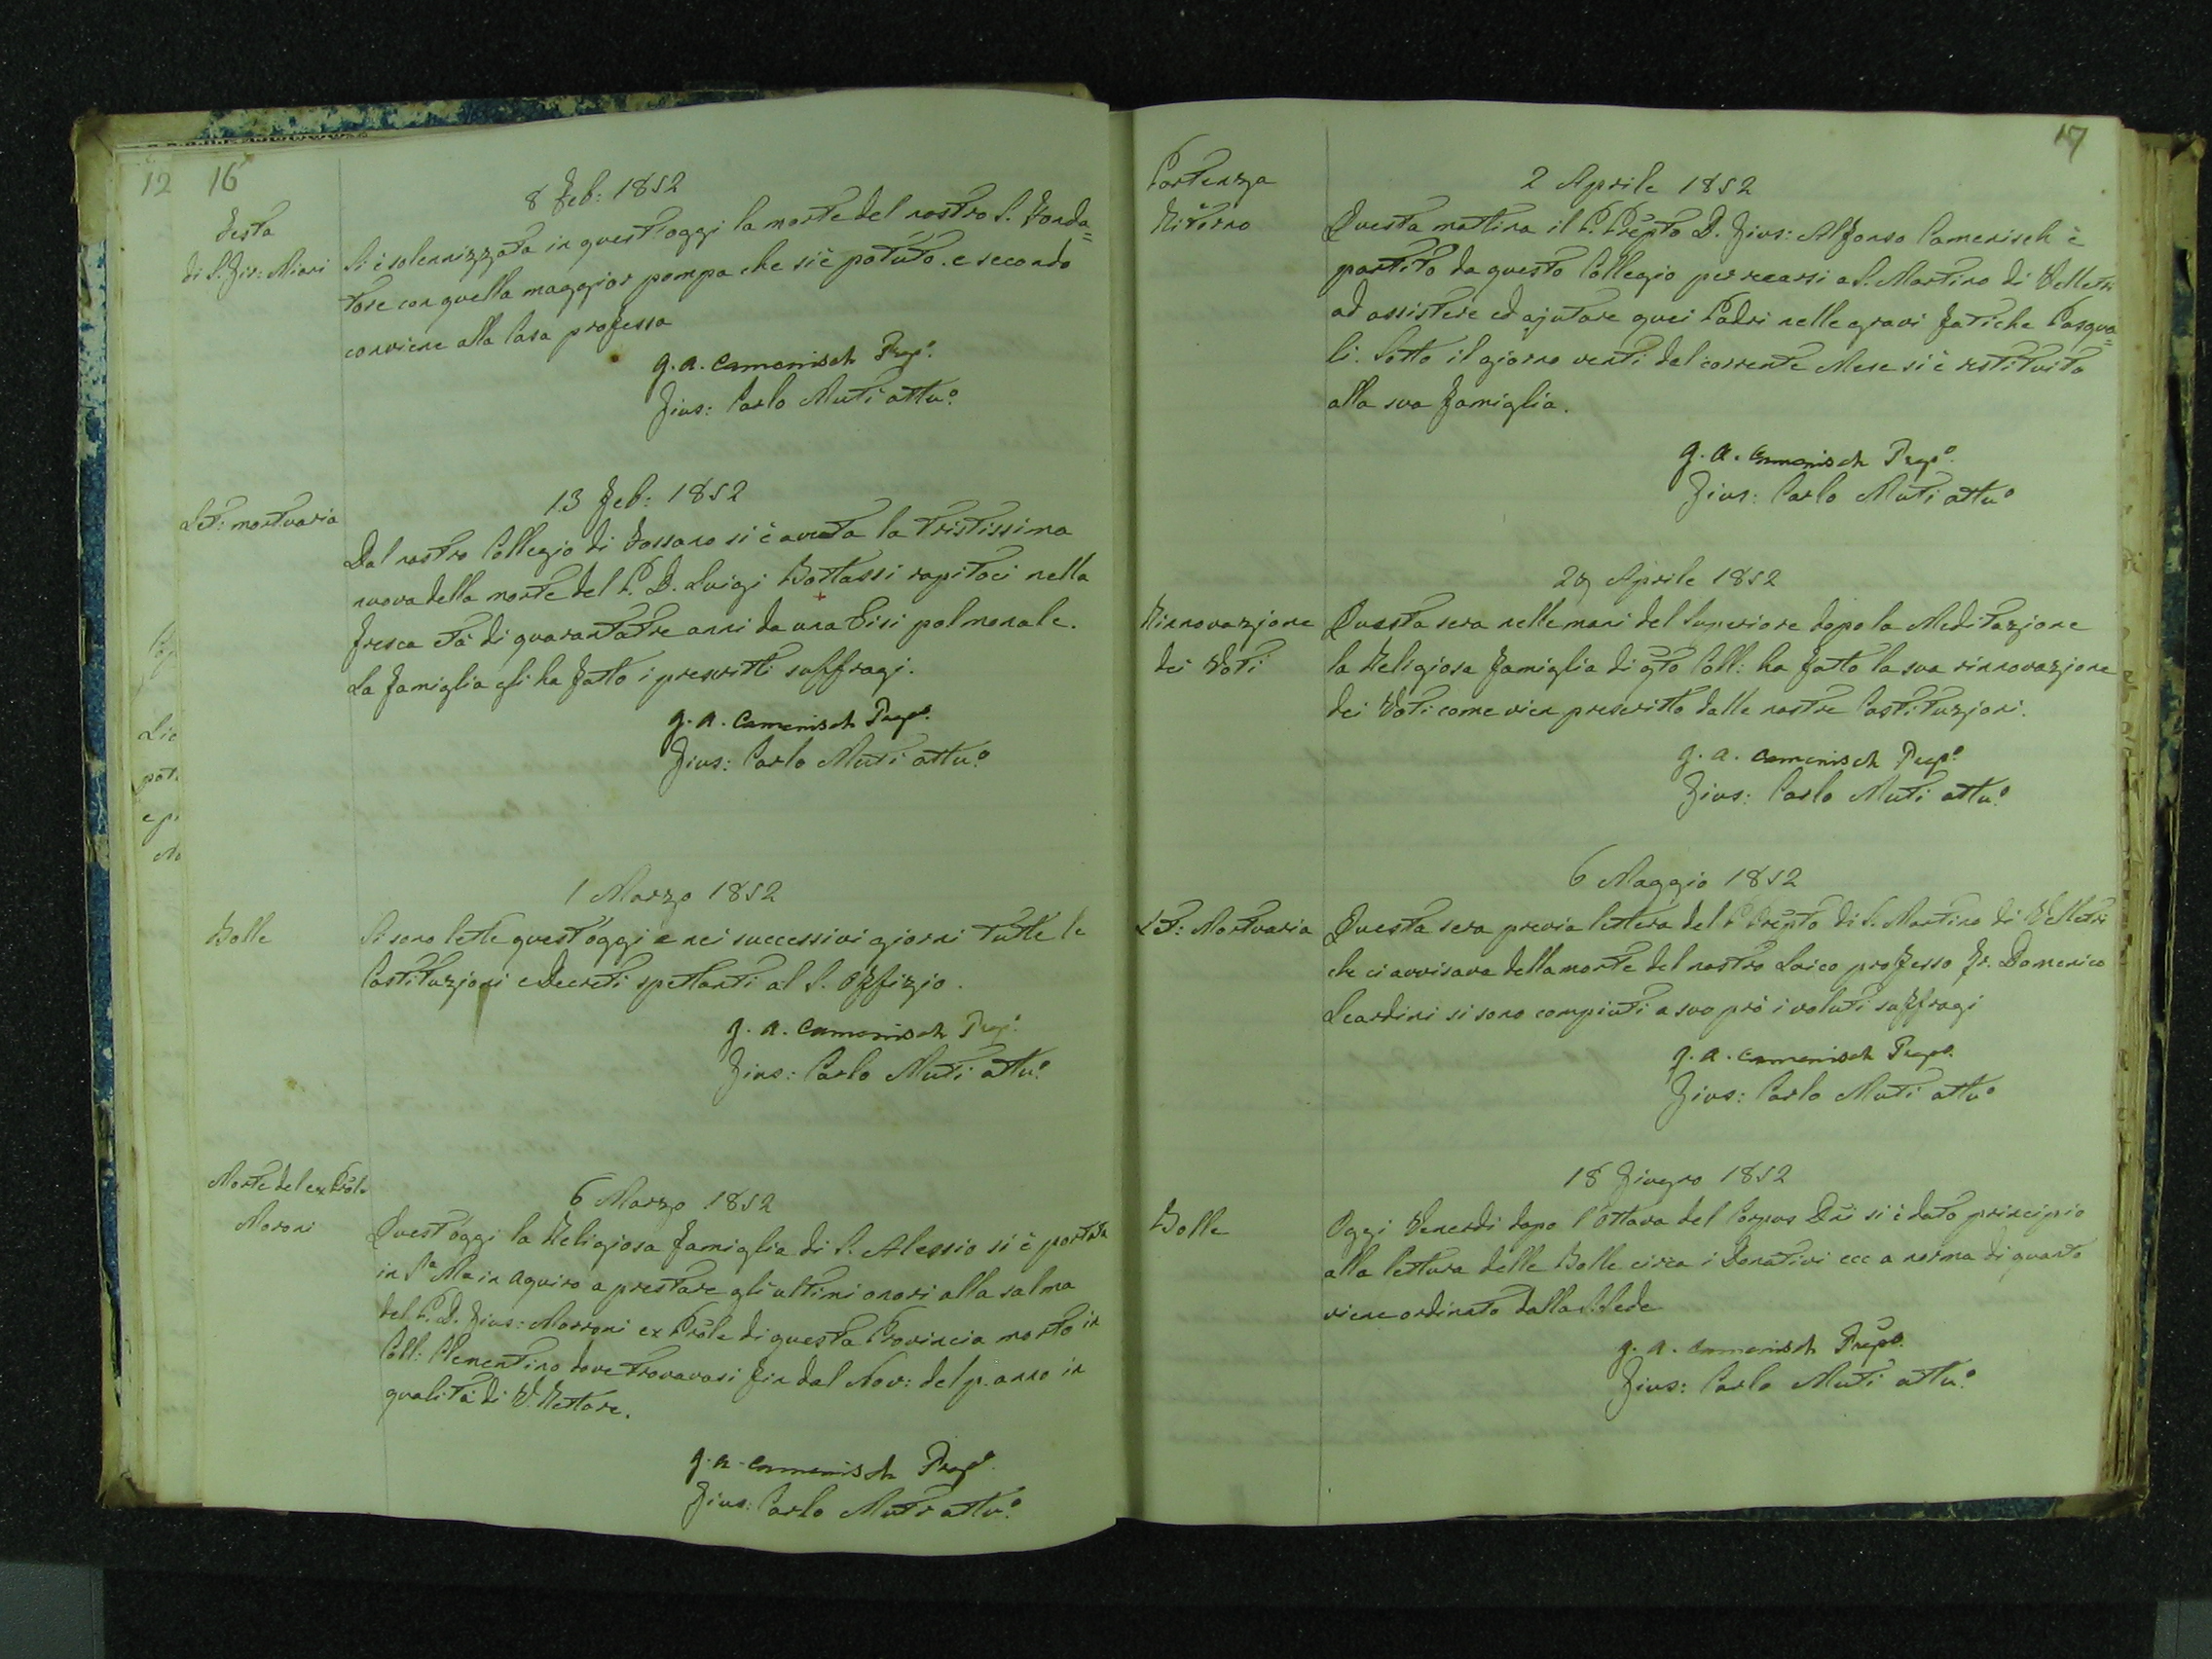 12 16
8 Feb: 1852
Festa
di S. Gir: Miani
Si è solennizzata in quest'oggi la morte del nostro S. Fonda=
tore con quella maggior pompa che si è potuto e secondo
conviene alla Casa professa
G. A. Camenisch Prep.o
Gius: Carlo Muti attu.o
13 Feb: 1852
Let: mortuaria
Dal nostro Collegio di Fossano si è avuta la tristissima
nuova della morte del P. D. Luigi Bottassi rapitoci nella
fresca età di quarantatre anni da una Tisi polmonale.
La famiglia gli ha fatto i prescritti suffragi.
G. A. Camenisch Prep.o
Gius: Carlo Muti attu.o
1 Marzo 1852
Bolle
Si sono lette quest'oggi e nei successivi giorni tutte le
Costituzioni e Decreti spettanti al S. Offizio.
G. A. Camenisch Prep.o
Gius: Carlo Muti attu.o
Morte del ex Prõle
Moroni
6 Marzo 1852
Quest'oggi la Religiosa famiglia di S. Alessio si è portata
in S.a M.a in Aquiro a prestare gli ultimi onori alla salma
del P. D. Gius: Morroni ex Prõle di questa Provincia morto in
Coll: Clementino dove trovavasi fin dal Nov: del p. anno in
qualità di V. Rettore.
G. A. Camenisch Prep.o
Gius: Carlo Muti attu.o
17
Partenza
Ritorno
2 Aprile 1852
Questa mattina il P. Prepto D. Gius: Alfonso Camenisch è
partito da questo Collegio per recarsi a S. Martino di Velletri
ad assistere ed ajutare quei Padri nelle gravi fatiche Pasqua=
li. Sotto il giorno venti del corrente Mese si è restituito
alla sua famiglia.
G. A. Camenisch Prep.o
Gius: Carlo Muti attu.o
Aprile 1852
Rinnovazione
dei Voti
Questa sera nelle mani del Superiore dopo la Meditazione
la Religiosa famiglia di q̃to Coll: ha fatto la sua rinnovazione
dei Voti come vien prescritto dalle nostre Costituzioni.
G. A. Camenisch Prep.o
Gius: Carlo Muti attu.o
6 Maggio 1852
Let: Mortuaria
Questa sera previa lettera del P. Prepto di S. Martino di Velletri
che ci avvisava della morte del nostro Laico professo Fr. Domenico
Leardini si sono compiuti a suo prò i voluti suffragi
G. A. Camenisch Prep.o
Gius: Carlo Muti attu.o
18 Giugno 1852
Bolle
Oggi Venerdi dopo l'Ottava del Corpus Dñi si è dato principio
alla lettura delle Bolle circa i Donativi ecc a norma di quanto
viene ordinato dalla S. Sede
G. A. Camenisch Prep.o
Gius: Carlo Muti attu.o